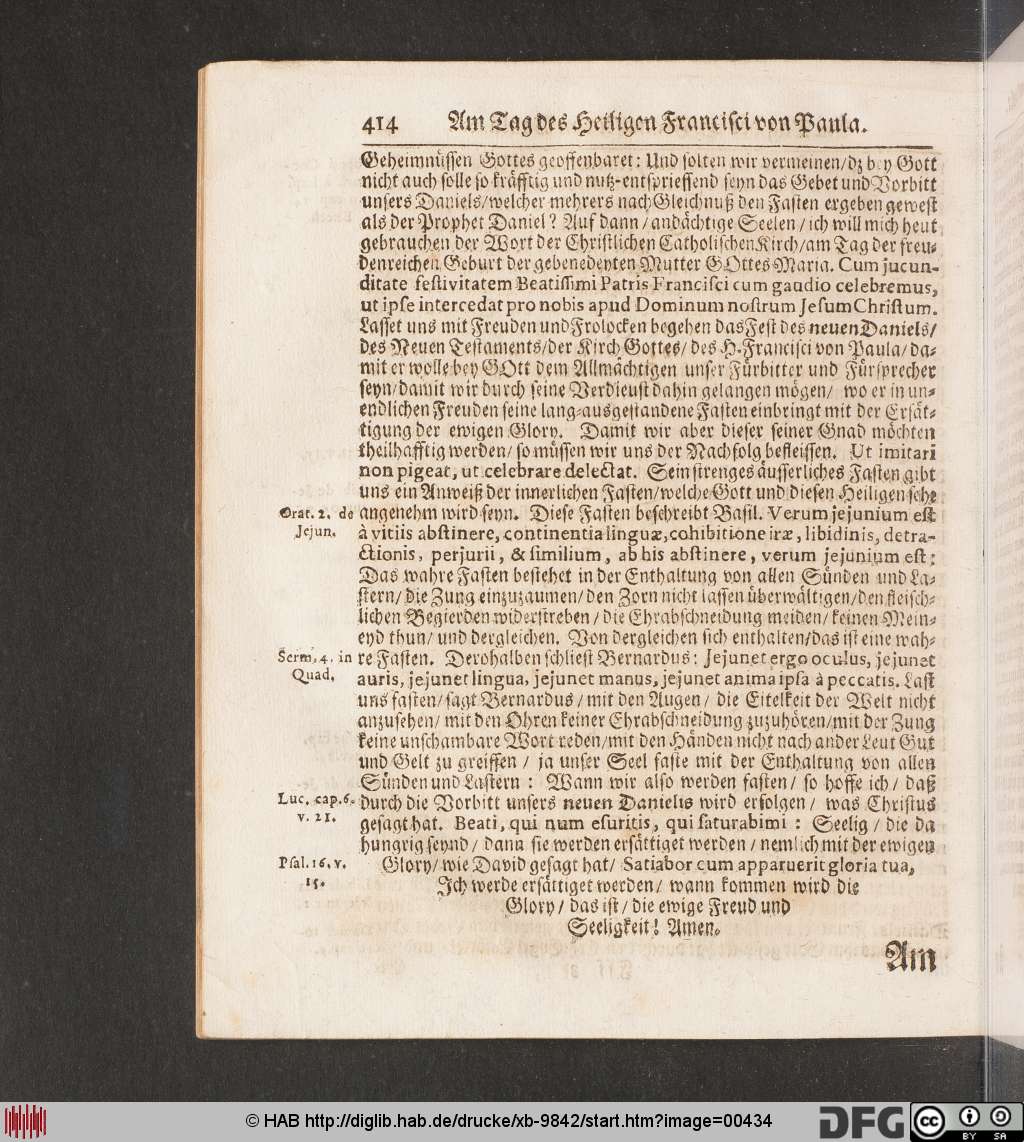 414 Am Tag des Heiligen Francisci von Paula.
Geheimnüssen Gottes geoffenbaret: Und solten wir vermeinen/ dz bey Gott
nicht auch solle so kräfftig und nutz-entspriessend seyn das Gebet und Vorbitt
unsers Daniels/ welcher mehrers nach Gleichnuß den Fasten ergeben gewest
als der Prophet Daniel? Auf dann/ andächtige Seelen/ ich will mich heut
gebrauchen der Wort der Christlichen Catholischen Kirch/ am Tag der freu-
denreichen Geburt der gebenedeyten Mutter GOttes Maria. Cum jucun-
ditate festivitatem Beatissimi Patris Francisci cum gaudio celebremus,
ut ipse intercedat pro nobis apud Dominum nostrum Jesum Christum.
Lasset uns mit Freuden und Frolocken begehen das Fest des neuen Daniels/
des Neuen Testaments/ der Kirch Gottes/ des H. Francisci von Paula/ da-
mit er wolle bey GOtt dem Allmächtigen unser Fürbitter und Fürsprecher
seyn/ damit wir durch seine Verdienst dahin gelangen mögen/ wo er in un-
endlichen Freuden seine lang-ausgestandene Fasten einbringt mit der Ersät-
tigung der ewigen Glory. Damit wir aber dieser seiner Gnad möchten
theilhafftig werden/ so müssen wir uns der Nachfolg befleissen. Ut imitari
non pigeat, ut celebrare delectat. Sein strenges äusserliches Fasten gibt
uns ein Anweiß der innerlichen Fasten/ welche Gott und diesen Heiligen sehr
Orat. 2. de
Jejun.
angenehm wird seyn. Diese Fasten beschreibt Basil. Verum jejunium est
à vitiis abstinere, continentia linguæ, cohibitione iræ, libidinis, detra-
ctionis, perjurii, & similium, ab his abstinere, verum jejunium est:
Das wahre Fasten bestehet in der Enthaltung von allen Sünden und La-
stern/ die Zung einzuzaumen/ den Zorn nicht lassen überwältigen/ den fleisch-
lichen Begierden widerstreben/ die Ehrabschneidung meiden/ keinen Mein-
eyd thun/ und dergleichen. Von dergleichen sich enthalten/ das ist eine wah-
Serm. 4. in
Quad.
re Fasten. Derohalben schliest Bernardus: Jejunet ergo oculus, jejunet
auris, jejunet lingua, jejunet manus, jejunet anima ipsa à peccatis. Last
uns fasten/ sagt Bernardus/ mit den Augen/ die Eitelkeit der Welt nicht
anzusehen/ mit den Ohren keiner Ehrabschneidung zuzuhören/ mit der Zung
keine unschambare Wort reden/ mit den Händen nicht nach ander Leut Gut
und Gelt zu greiffen/ ja unser Seel faste mit der Enthaltung von allen
Sünden und Lastern: Wann wir also werden fasten/ so hoffe ich/ daß
Luc. cap. 6.
v. 21.
durch die Vorbitt unsers neuen Danielis wird erfolgen/ was Christus
gesagt hat. Beati, qui num esuritis, qui saturabimi: Seelig/ die da
hungrig seynd/ dann sie werden ersättiget werden/ nemlich mit der ewigen
Psal. 16. v.
15.
Glory/ wie David gesagt hat/ Satiabor cum apparuerit gloria tua,
Ich werde ersättiget werden/ wann kommen wird die
Glory/ das ist/ die ewige Freud und
Seeligkeit! Amen.
Am
© HAB http://diglib.hab.de/drucke/xb-9842/start.htm?image=00434
DFG
cc BY SA